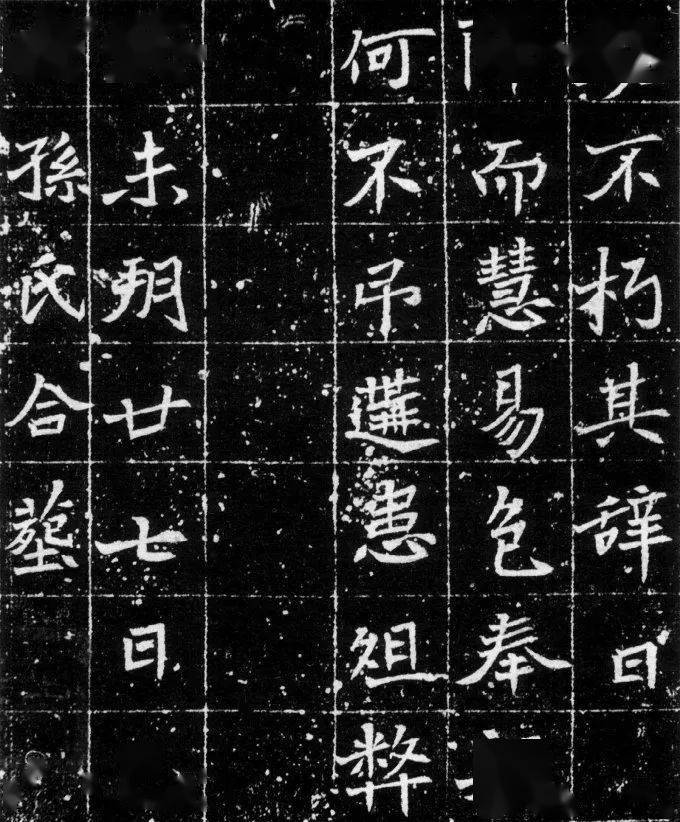 不朽其辞曰
而慧易色奉
何不吊遘患殂弊
未朔廿七日
孫氏合塟